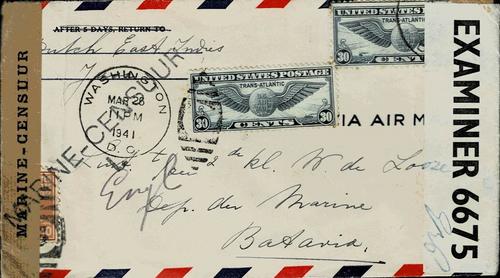 AFTER 5 DAYS, RETURN TO
Dutch East Indies
MARINE-CENSUUR
MARINE-CENSUUR
WASHINGTON
MAR 26
PM
1941
D.C.
UNITED STATES POSTAGE
TRANS-ATLANTIC
30 CENTS 30
UNITED STATES
TRANS-ATLANTIC
30 CENT
VIA AIR M
EXAMINER 6675
Engl
2e kl. W. de Looze
Dep. der Marine
Batavia.